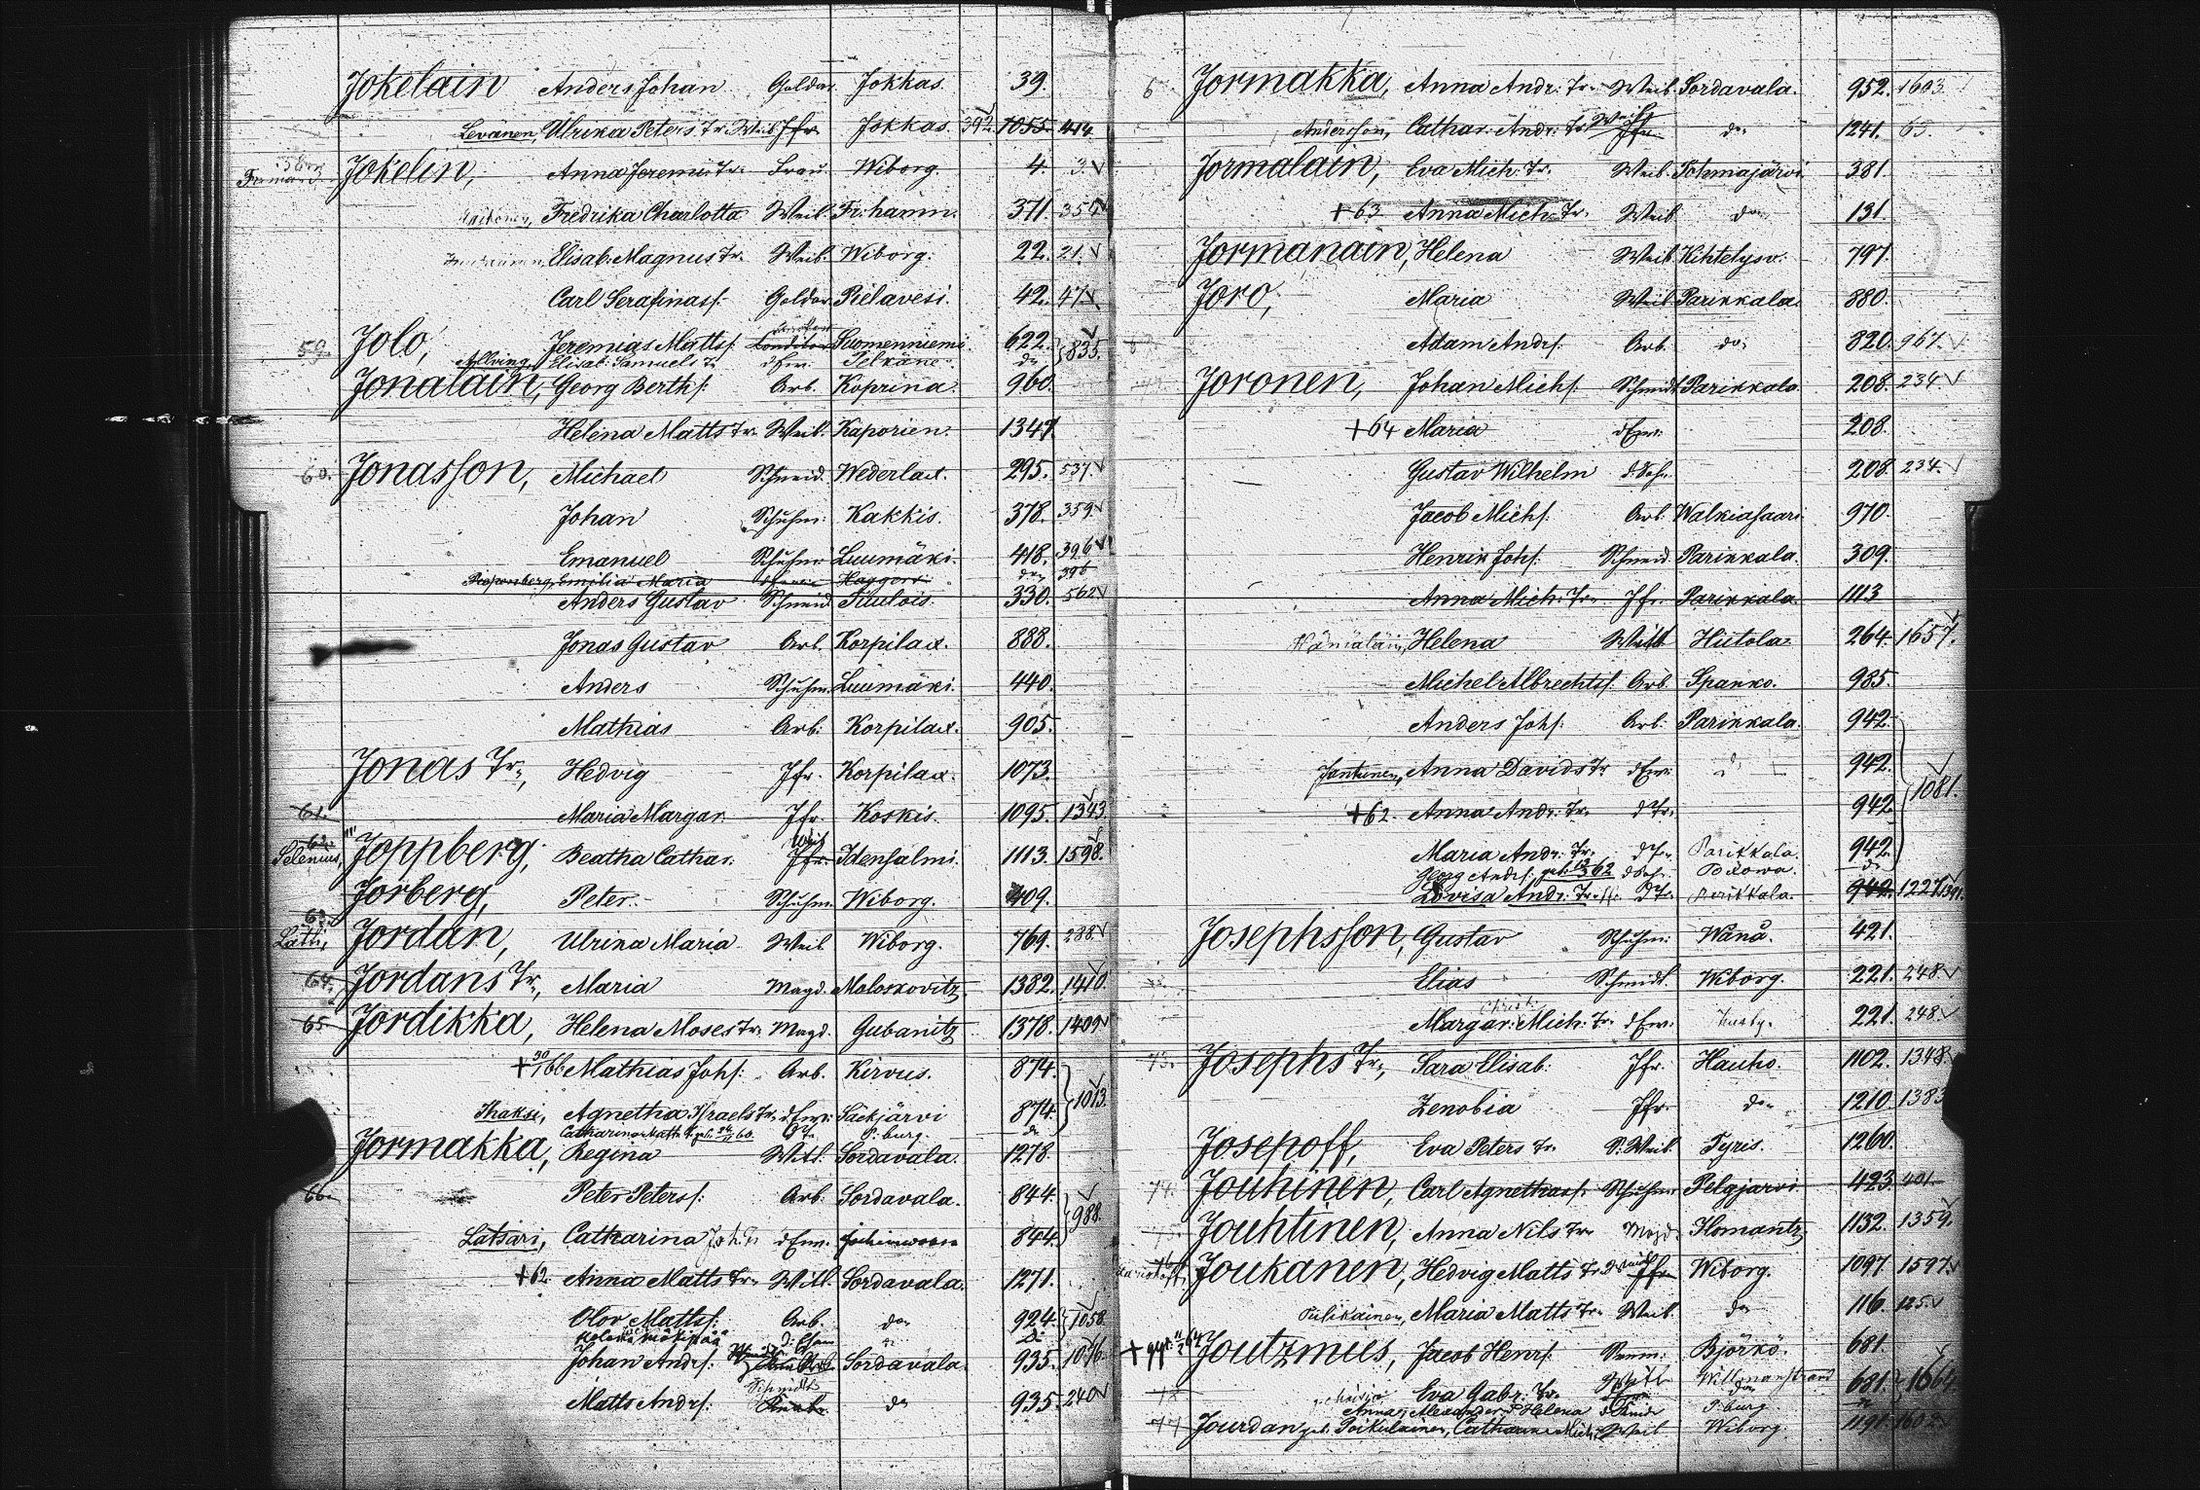 Jokelain Anders Johan Goldar. Jokkas. 39.
Levänen, Ulrika Peters Tr. Weib Jfr Jokkas. 392 1055 414
Jokelin, Anna Jeremi: Tr. Frau. Wiborg. 4. 3.
Fredrika Charlotta Weib. Fr:hamn. 371 354
Elisab. Magnus Tr. Weib. Wiborg. 22. 21.
Carl Serafinass. Goldar. Pielavesi 42. 47
59. Jolo, Jeremias Matts/. Conditor Suomenniemi. 622. 835.
Allving, Elisab: Samuels Tr dErw. Pelkäne. do
Jonalain, Georg Berth/. Arb. Koprina. 960.
Helena Matts Tr. Weib. Kaporien. 1347.
60. Jonasson, Michael Schneid. Wederlax. 295. 537
Johan Schuhm: Kakkis. 378. 359
Emanuel Schuhm Luumäki. 418. 396
Emilia Maria Haggers do 396
Anders Gustav Schmid Tuulois. 330. 562
Jonas Gustav Arb. Korpilax. 888.
Anders Schuhm. Luumäki. 440.
Mathias Arb: Korpilax. 905.
Jonas Tr., Hedvig Jfr. Korpilax. 1073.
61. Maria Margar. Jfr Koskis. 1095. 1343.
62. Selenius, Joppberg, Beatha Cathar. Jfr. Weib Idensalmi. 1113. 1598.
Jorberg, Peter. Schuhm. Wiborg. 409.
63. Lätti, Jordan, Ulrika Maria Weib Wiborg. 769. 288.
64. Jordans Tr., Maria Magd. Moloskovitz. 1382. 1410.
65. Jordikka, Helena Moses Tr. Magd. Gubanitz 1378. 1409
+ 30/1 66 Mathias Joh/. Arb. Kirvus. 874. 1013.
Thaksi, Agnetha Israels Tr. dErw: Säckjärvi 874.
Catharina Matth. Tr. geb. 60. dTr P:burg. do
Jormakka, Regina Witt. Sordavala. 1278.
66. Peter Peters/. Arb. Sordavala. 844. 988.
Latsari, Catharina Joh. Tr dErw. 844.
+62. Anna Matts Tr. Witt. Sordavala. 1271.
Olov Matts/. Arb. do 924. 1058.
Johan Andr/. Sordavala. 935. 1076.
Matts Andr/. Schmidts do 935. 240
6 Jormakka, Anna Andr: Tr. Weib. Sordavala. 952. 1603
Andersson, Cathar: Andr: Tr Weib Jfr. do 1241. 63.
Jormalain, Eva Mich: Tr. Weib. Tohmajärvi. 381.
+63 Anna Mich: Tr. Weib do 131.
Jormanain, Helena Weib Kihtelysv. 797.
Joro, Maria Weib Parikkala. 880.
Adam Andr/. Arb. do. 820. 967.
Joronen, Johan Mich/. Schmidt Parikkala. 208. 234
+64 Maria dErw: 208.
Gustav Wilhelm d:Sohn 208. 234.
Jacob Mich/. Arb. Walkiasaari 970.
Henrik Joh/. Schneid. Parikkala. 309.
Anna Mich: Tr. Jfr. Parikkala. 1113
Helena Weib Hiitola 264. 1657.
Michel Albrechts/. Arb. Spanko. 985.
Anders Joh/. Arb. Parikkala. 942.
Jantunen, Anna Davids Tr dErw: do 942. 1081.
+62. Anna Andr: Tr. dTr. 942.
Maria Andr: Tr. dTr. Parikkala. 942.
Georg Andr/. geb. 62 dSohn. do
Lovisa Andr: Tr. dTr. Parikkala. 942. 1227
Josephsson, Gustav Schuhm: Wånå. 421.
Elias Schmidt. Wiborg. 221. 248
Margar: Mich: Tr. dErw: 221. 248
73. Josephs Tr., Sara Elisab: Jfr. Hauho. 1102. 1348
Zenobia Jfr. do 1210. 1383
Josepoff, Eva Peters Tr. S:Weib. Tyris. 1260.
74. Jouhinen, Carl Agnethas/. Schuhm. Pelgjärvi. 423. 401.
75. Jouhtinen, Anna Nils Tr. Magd. Ilomantz. 1132. 1359.
76 Joukanen, Hedvig Matts Tr Jfr Wiborg. 1097 1597
Pulikainen, Maria Matts Tr. Weib do 116. 125.
+ 64 Joutzmus, Jacob Henr/. Björkö. 681.
78 Eva Gabr: Tr. Witt Willmanstrand 681. 1664
Anna, Alexander & Helena dKinder P:burg.
77 Jourdan geb. Poikulainen, Catharina Mich: Weib Wiborg. 1191 1602